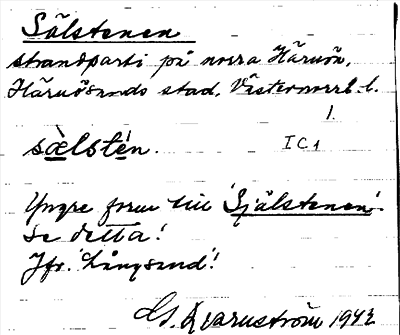 Sälstenen
strandparti på norra Härnön,
Härnösands stad, Västernorrl. l.
1.
sæ̀lstén. IC1
Yngre form till 'Själstenen'.
Se detta!
Jfr. 'Långsand'!
G. Kvarnström 1942